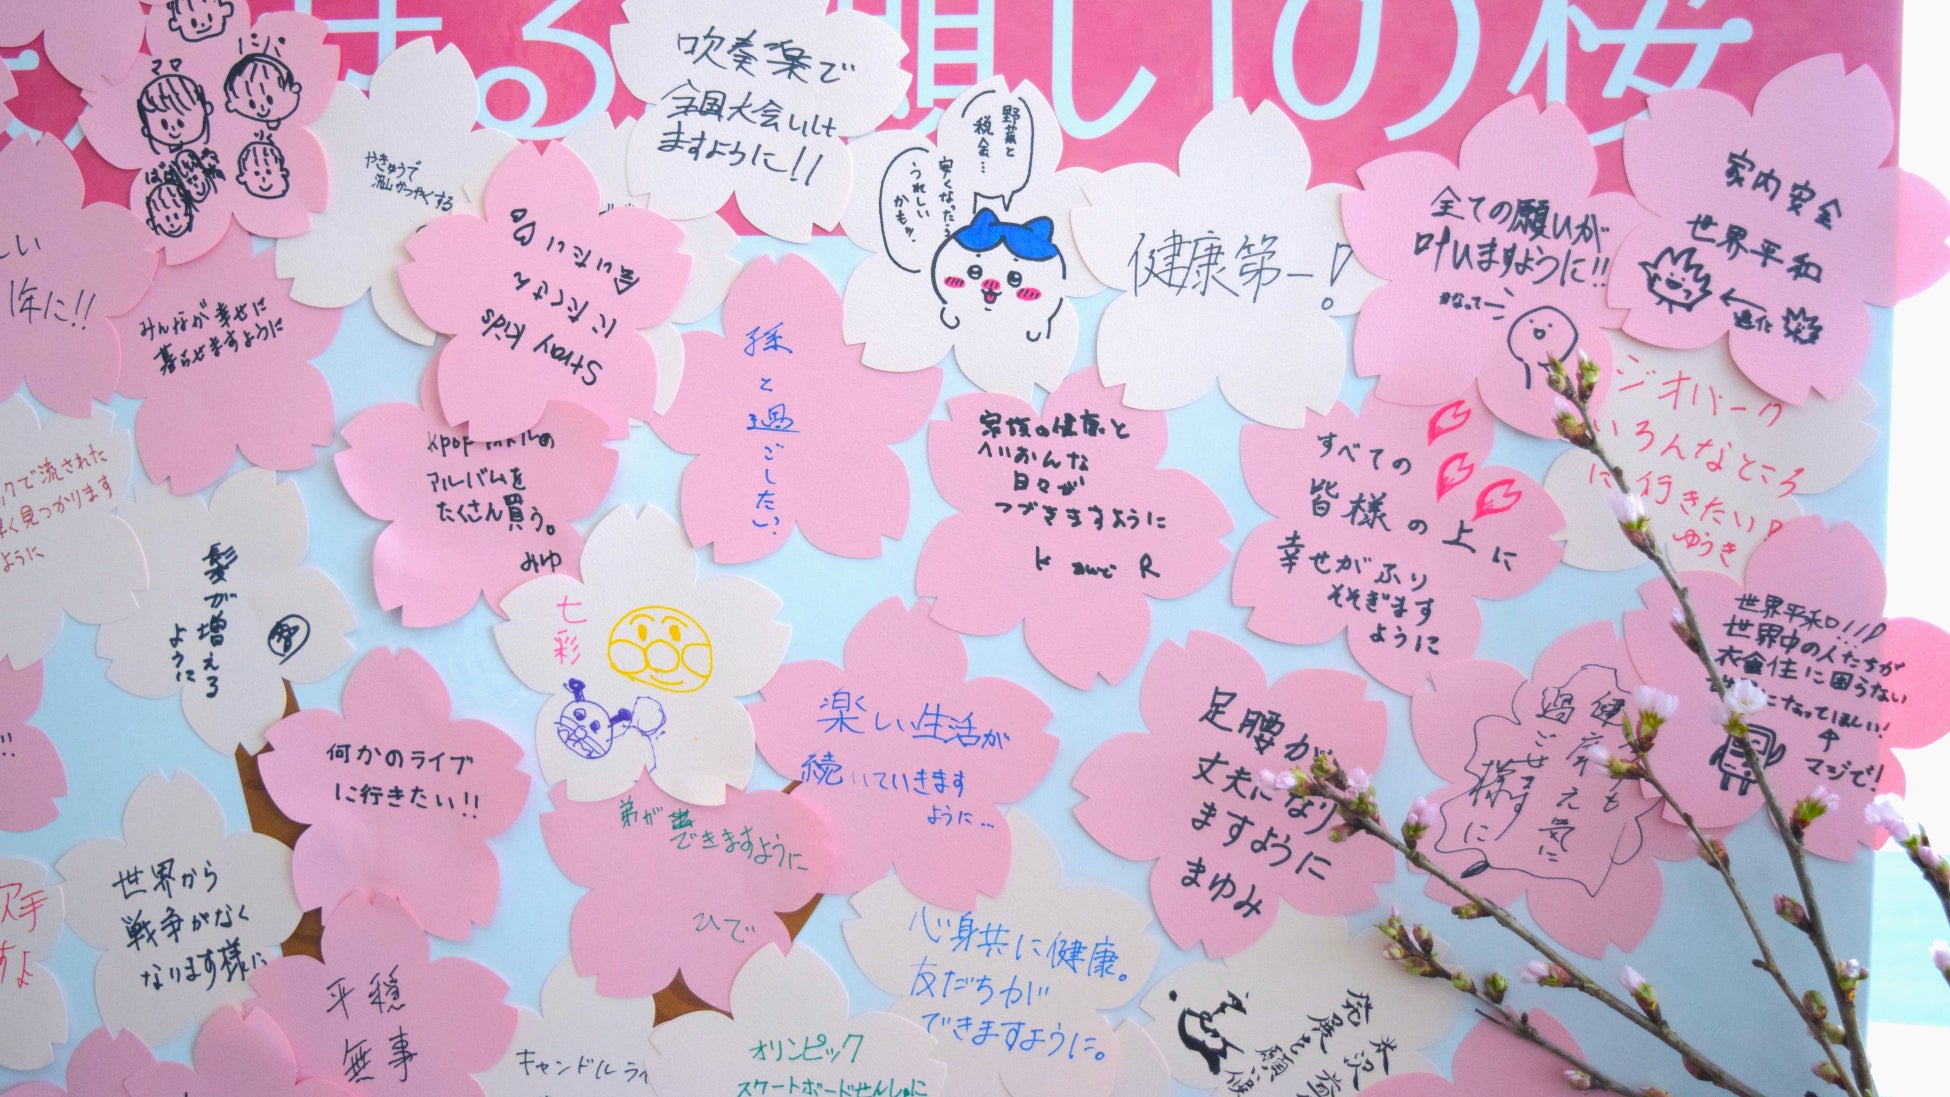 願いの桜
ママ
パパ
ばぁば
吹奏楽で
全国大会いけ
ますように!!
野菜と
税金…
安くなったら
うれしい
かもッ
やきゅうで
かつやくする
健康第一!
全ての願いが
叶いますように!!
かなってー
家内安全
世界平和
進化
しい
1年に!!
みんなが幸せに
暮らせますように
Stray Kids
にたくさん
会いたい
孫と過ごしたい
アルバムを
たくさん買う。
みゆ
家族の健康と
へいおんな
日々が
つづきますように
K R
すべての
皆様の上に
幸せがふり
そそぎます
ように
ジオパーク
いろんなところ
に行きたい!
ゆうき
で流された
早く見つかります
ように
髪が増える
ように
七彩
世界平和!!!
世界中の人たちが
衣食住に困らない
になってほしい!
マジで!
何かのライブ
に行きたい!!
楽しい生活が
続いていきます
ように…
足腰が
丈夫になり
ますように
まゆみ
健康でも
過ごせます
様に
弟が
できますように
ひで
世界から
戦争がなく
なります様に
心身共に健康。
友だちが
できますように。
平穏
無事
キャンドルライ
オリンピック
スケートボードせんしゅに
発展を願う